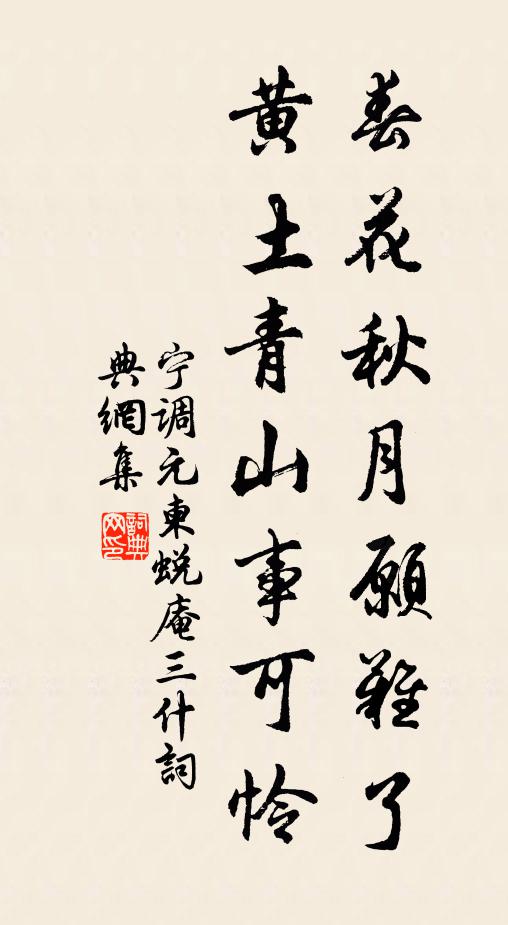 春花秋月願難了
黄土青山事可怜
宁調元東蜕庵三什詞
典網集
詞典網印